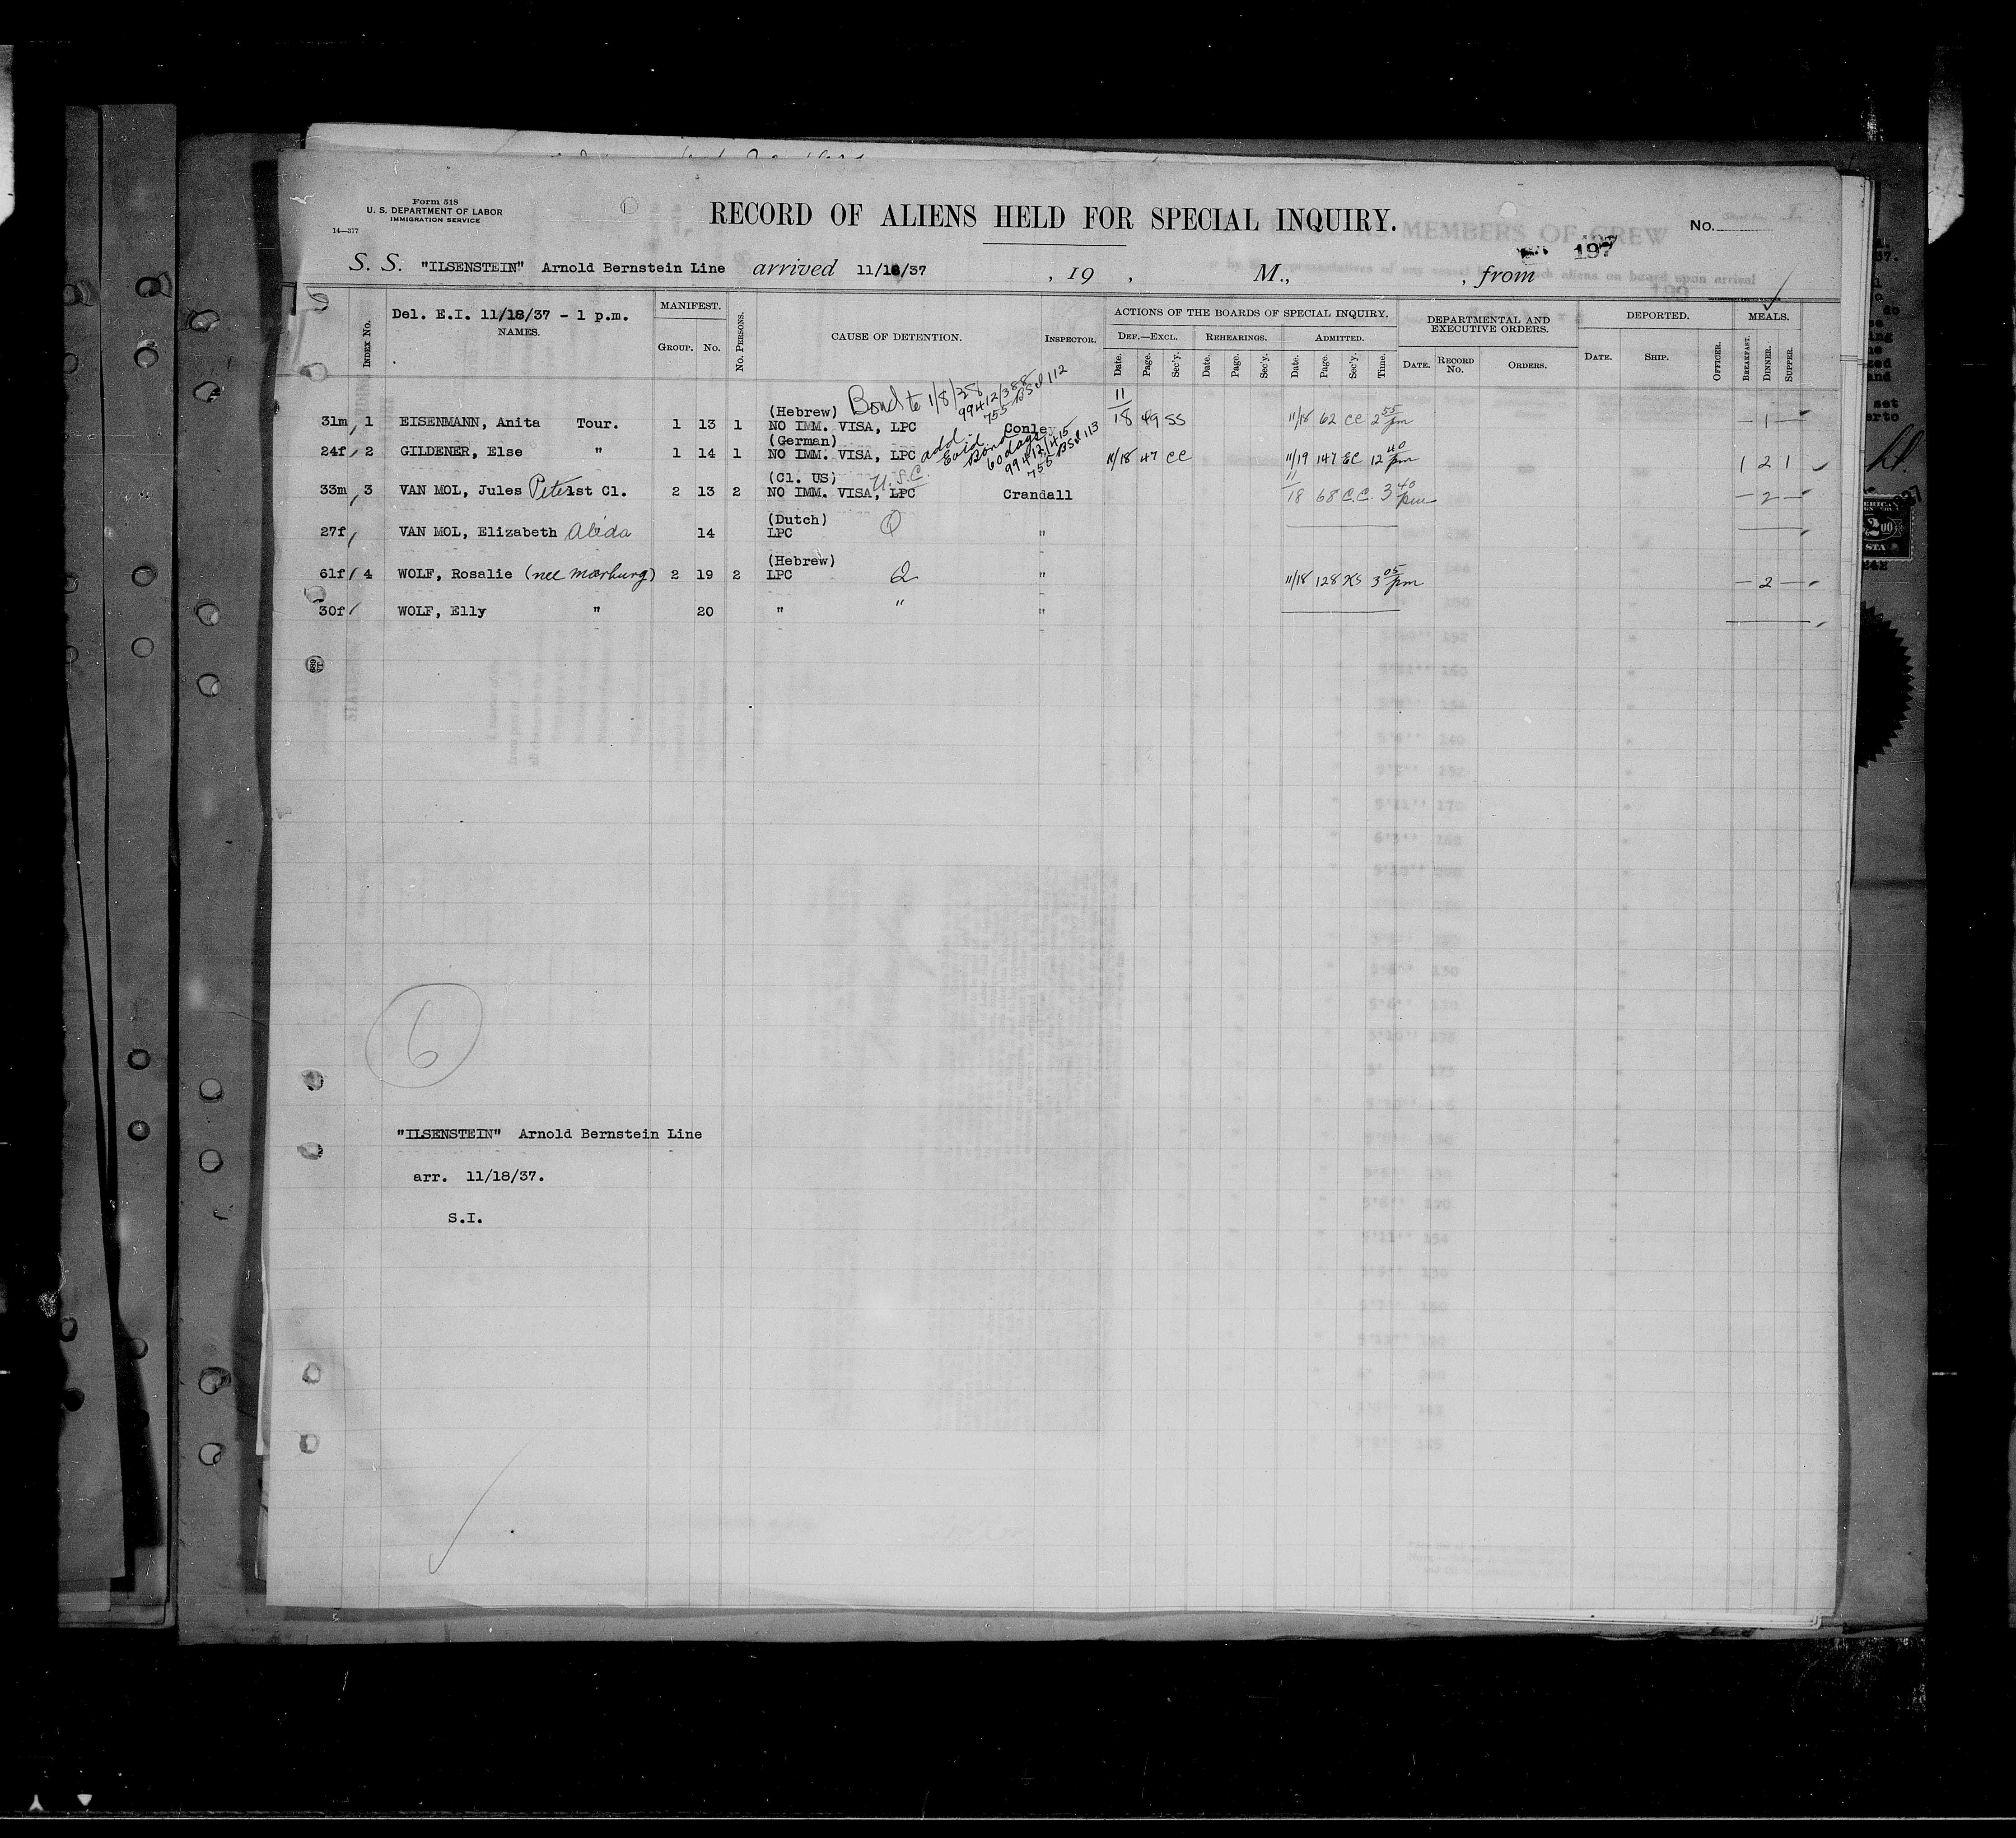 Form 518
U. S. DEPARTMENT OF LABOR
IMMIGRATION SERVICE
14—377
RECORD OF ALIENS HELD FOR SPECIAL INQUIRY.
No.
197
S. S. "ILSENSTEIN" Arnold Bernstein Line arrived 11/18/37 , 19 , M., , from
INDEX No.
Del. E.I. 11/18/37 - 1 p.m.
NAMES.
MANIFEST.
GROUP. No.
No. PERSONS.
CAUSE OF DETENTION.
INSPECTOR.
ACTIONS OF THE BOARDS OF SPECIAL INQUIRY.
DEF.—EXCL. REHEARINGS. ADMITTED.
Date. Page. Sec'y. Date. Page. Sec'y. Date. Page. Sec'y. Time.
DEPARTMENTAL AND
EXECUTIVE ORDERS.
DATE. RECORD No. ORDERS.
DEPORTED.
DATE. SHIP. OFFICER.
MEALS.
BREAKFAST. DINNER. SUPPER.
Bond to 1/8/38
99412/388
755 BSI 112
(Hebrew)
31m 1 EISENMANN, Anita Tour. 1 13 1 NO IMM. VISA, LPC Conley 11/18 49 SS 11/18 62 CC 2 55 pm — 1 —
(German)
24f 2 GILDENER, Else " 1 14 1 NO IMM. VISA, LPC 11/18 47 CC 11/19 147 EC 12 40 pm 1 2 1
add. Evid. Bond 60 days
99412/415
755 BSI 113
(Cl. US) U.S.C.
33m 3 VAN MOL, Jules Peter 1st Cl. 2 13 2 NO IMM. VISA, LPC Crandall 11/18 68 C.C. 3 40 pm — 2 —
(Dutch)
27f VAN MOL, Elizabeth Alida 14 LPC "
(Hebrew)
61f 4 WOLF, Rosalie (nee Marburg) 2 19 2 LPC " 11/18 128 KS 3 05 pm — 2 —
30f WOLF, Elly " 20 " " "
6
"ILSENSTEIN" Arnold Bernstein Line
arr. 11/18/37.
S.I.